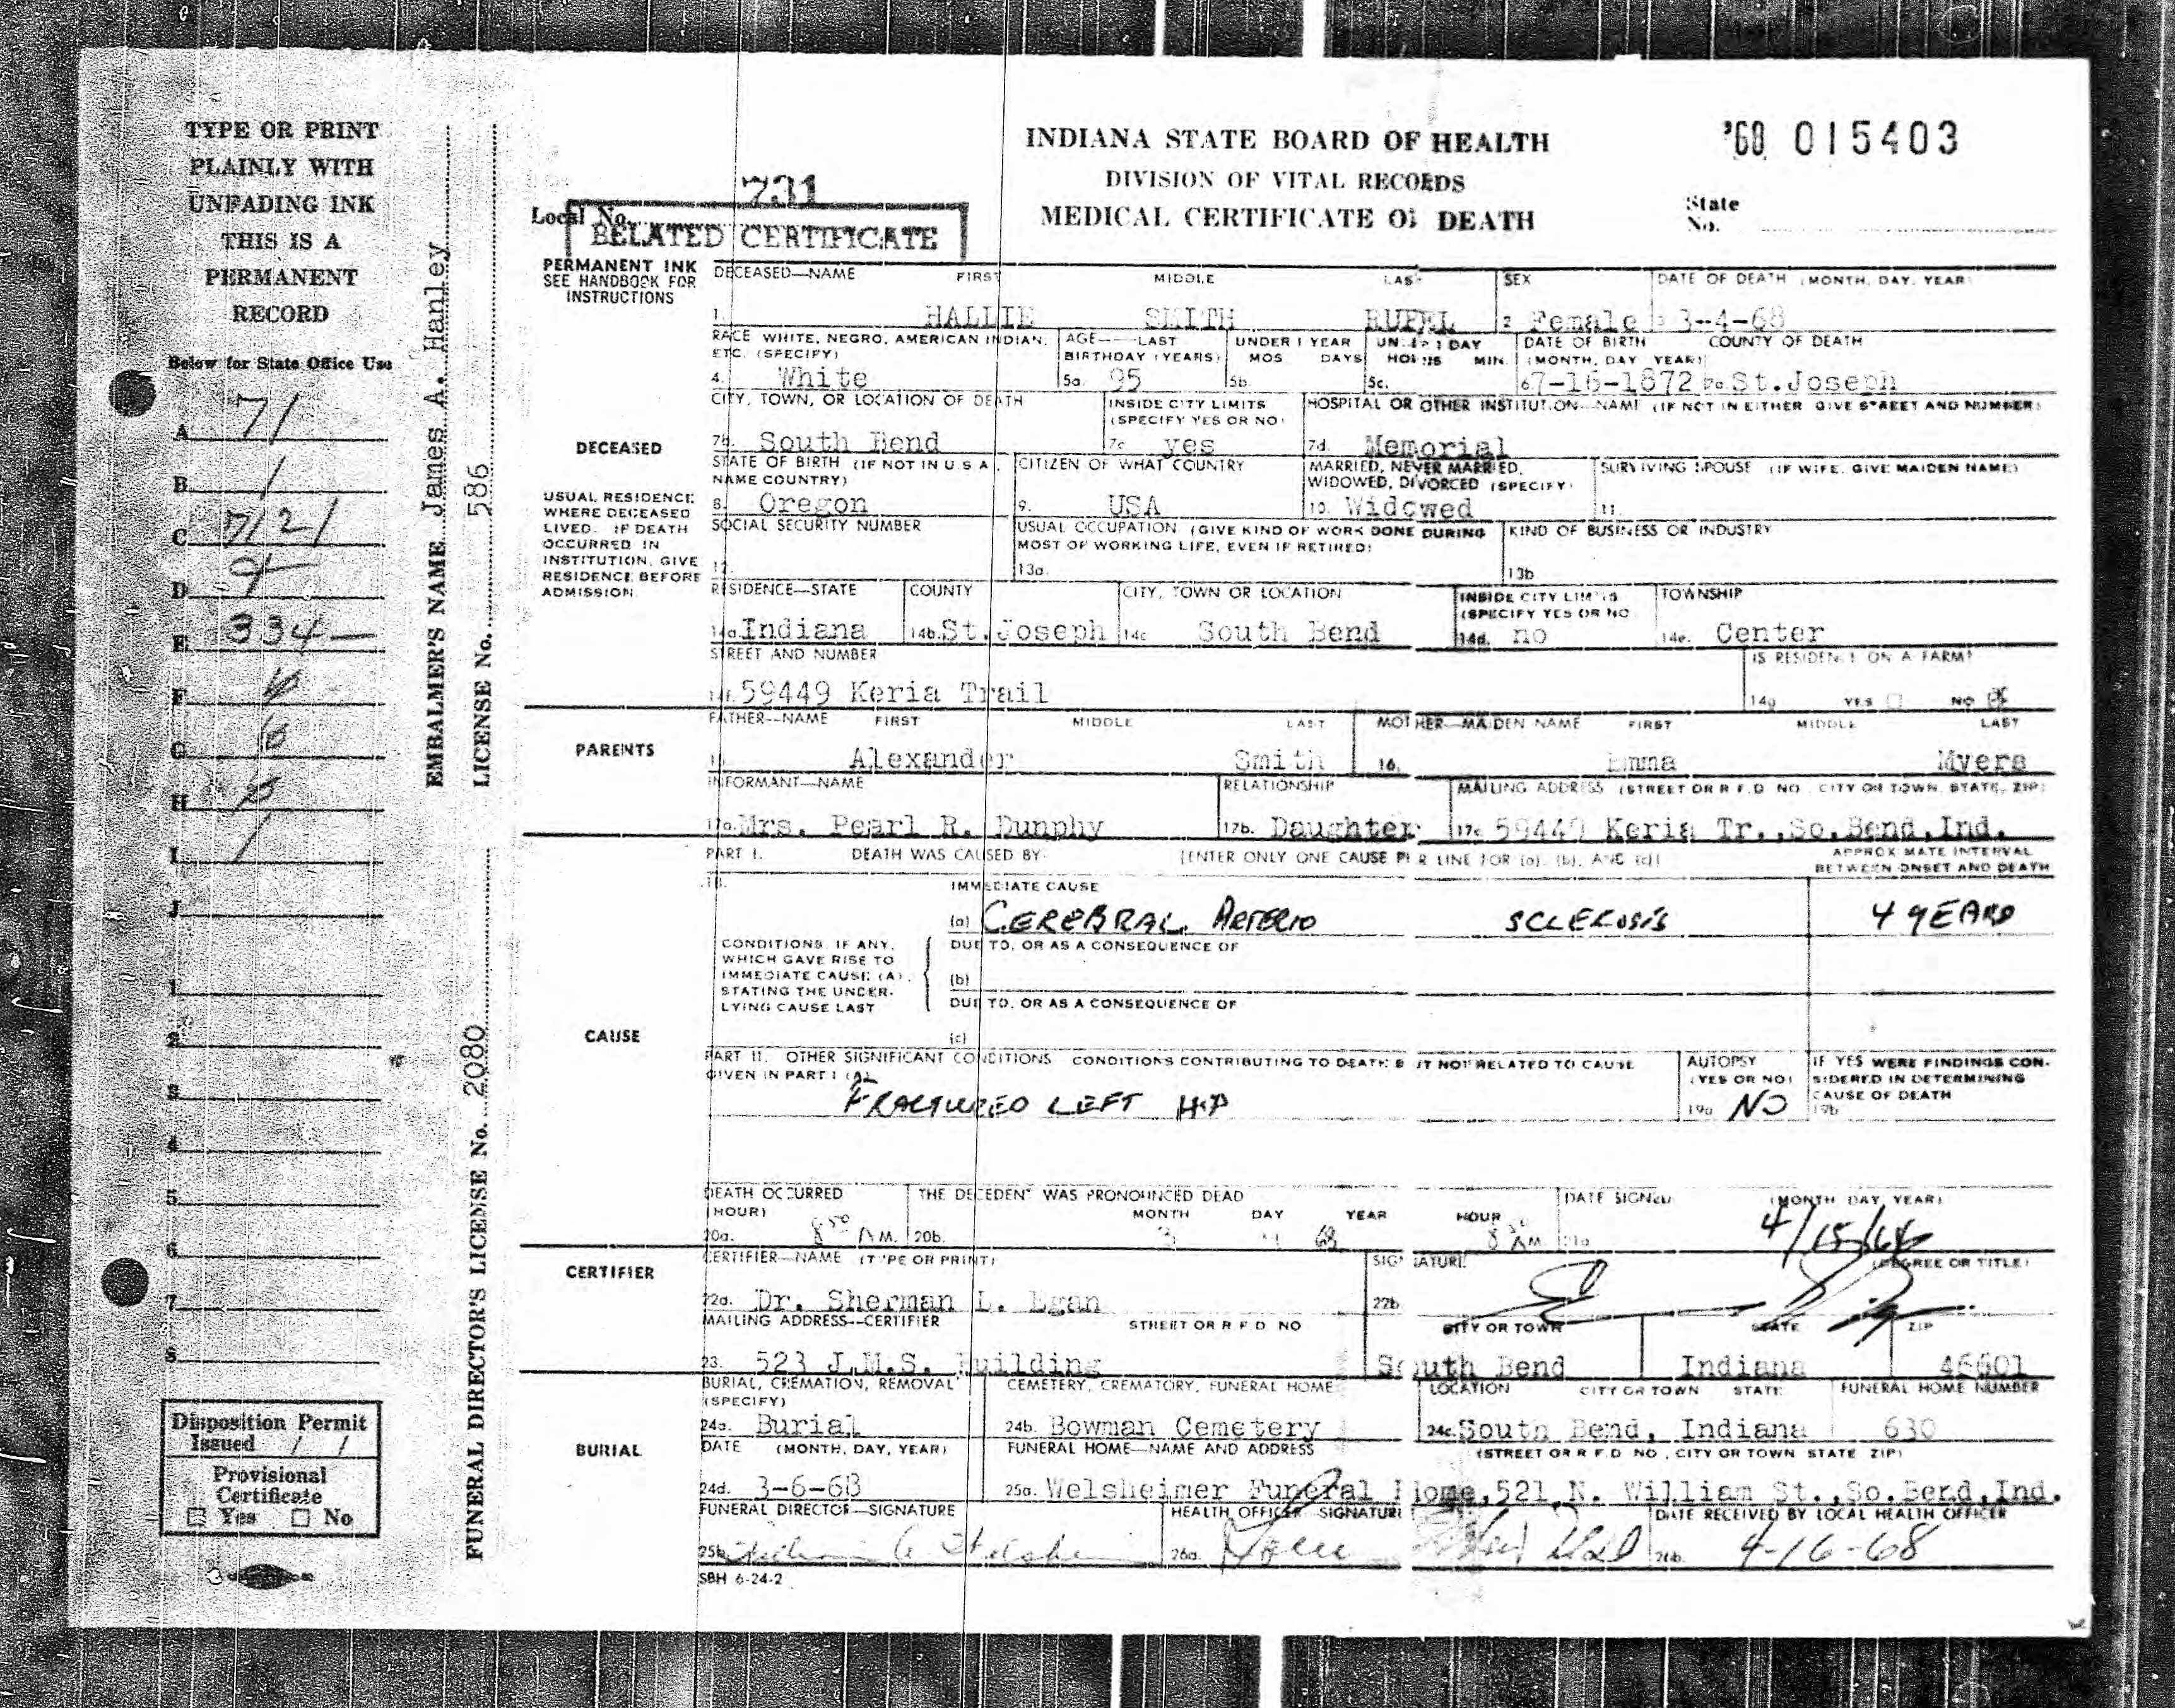 TYPE OR PRINT
PLAINLY WITH
UNFADING INK
THIS IS A
PERMANENT
RECORD
Below for State Office Use
A 71
B 1
C 7121
D 9
E 334—
F
G
H
I 1
J
1
2
3
4
5
6
7
8
Disposition Permit
Issued / /
Provisional
Certificate
Yes No
EMBALMER'S NAME James A. Hanley
LICENSE No. 586
FUNERAL DIRECTOR'S LICENSE No. 2080
INDIANA STATE BOARD OF HEALTH
DIVISION OF VITAL RECORDS
MEDICAL CERTIFICATE OF DEATH
'68 015403
State
No.
Local No. 731
BELATED CERTIFICATE
PERMANENT INK
SEE HANDBOOK FOR
INSTRUCTIONS
DECEASED—NAME FIRST MIDDLE LAST SEX DATE OF DEATH (MONTH, DAY, YEAR)
1. HALLIE SMITH RUPEL 2 Female 3 3-4-68
RACE WHITE, NEGRO, AMERICAN INDIAN, AGE——LAST UNDER 1 YEAR UNDER 1 DAY DATE OF BIRTH COUNTY OF DEATH
ETC. (SPECIFY) BIRTHDAY (YEARS) MOS DAYS HOURS MIN. (MONTH, DAY YEAR)
4. White 5a 95 5b. 5c. 6 7-16-1872 7a St.Joseph
CITY, TOWN, OR LOCATION OF DEATH INSIDE CITY LIMITS HOSPITAL OR OTHER INSTITUTION—NAME (IF NOT IN EITHER GIVE STREET AND NUMBER)
(SPECIFY YES OR NO)
DECEASED
7b. South Bend 7c yes 7d. Memorial
STATE OF BIRTH (IF NOT IN U S A, CITIZEN OF WHAT COUNTRY MARRIED, NEVER MARRIED, SURVIVING SPOUSE (IF WIFE, GIVE MAIDEN NAME)
NAME COUNTRY) WIDOWED, DIVORCED (SPECIFY)
8. Oregon 9. USA 10. Widowed 11.
USUAL RESIDENCE
WHERE DECEASED
LIVED. IF DEATH
OCCURRED IN
INSTITUTION, GIVE
RESIDENCE BEFORE
ADMISSION
SOCIAL SECURITY NUMBER USUAL OCCUPATION (GIVE KIND OF WORK DONE DURING KIND OF BUSINESS OR INDUSTRY
MOST OF WORKING LIFE, EVEN IF RETIRED)
12. 13a. 13b
RESIDENCE—STATE COUNTY CITY, TOWN OR LOCATION INSIDE CITY LIMITS TOWNSHIP
(SPECIFY YES OR NO
14a. Indiana 14b. St.Joseph 14c South Bend 14d. no 14e. Center
STREET AND NUMBER IS RESIDENCE ON A FARM?
14f. 59449 Keria Trail 14g YES NO X
FATHER—NAME FIRST MIDDLE LAST MOTHER—MAIDEN NAME FIRST MIDDLE LAST
PARENTS
15 Alexander Smith 16. Emma Myers
INFORMANT—NAME RELATIONSHIP MAILING ADDRESS (STREET OR R F.D NO CITY OR TOWN, STATE, ZIP)
17a. Mrs. Pearl R. Dunphy 17b. Daughter 17c 59449 Keria Tr.,So.Bend,Ind.
PART I. DEATH WAS CAUSED BY [ENTER ONLY ONE CAUSE PER LINE FOR (a), (b), AND (c)] APPROXIMATE INTERVAL
BETWEEN ONSET AND DEATH
18. IMMEDIATE CAUSE
(a) CEREBRAL ARTERIO SCLEROSIS 4 YEARS
CONDITIONS IF ANY,
WHICH GAVE RISE TO
IMMEDIATE CAUSE (A),
STATING THE UNDER-
LYING CAUSE LAST
DUE TO, OR AS A CONSEQUENCE OF
(b)
DUE TO, OR AS A CONSEQUENCE OF
CAUSE
(c)
PART II. OTHER SIGNIFICANT CONDITIONS CONDITIONS CONTRIBUTING TO DEATH BUT NOT RELATED TO CAUSE AUTOPSY IF YES WERE FINDINGS CON-
GIVEN IN PART I (A) (YES OR NO) SIDERED IN DETERMINING
CAUSE OF DEATH
FRACTURED LEFT HIP 19a NO 19b
DEATH OCCURRED THE DECEDENT WAS PRONOUNCED DEAD DATE SIGNED (MONTH DAY, YEAR)
(HOUR) MONTH DAY YEAR HOUR
20a. 8 50 AM. 20b. 3 4 68 8 50 AM 21a 4/15/68
CERTIFIER
CERTIFIER—NAME (TYPE OR PRINT) SIGNATURE (DEGREE OR TITLE)
22a. Dr. Sherman L. Egan 22b
MAILING ADDRESS—CERTIFIER STREET OR R F D NO CITY OR TOWN STATE ZIP
23. 523 J.M.S. Building South Bend Indiana 46601
BURIAL, CREMATION, REMOVAL CEMETERY, CREMATORY, FUNERAL HOME LOCATION CITY OR TOWN STATE FUNERAL HOME NUMBER
(SPECIFY)
24a. Burial 24b. Bowman Cemetery 24c. South Bend, Indiana 630
BURIAL
DATE (MONTH, DAY, YEAR) FUNERAL HOME—NAME AND ADDRESS (STREET OR R F.D NO , CITY OR TOWN STATE ZIP)
24d. 3-6-68 25a. Welsheimer Funeral Home,521 N. William St.,So.Bend,Ind.
FUNERAL DIRECTOR—SIGNATURE HEALTH OFFICER SIGNATURE DATE RECEIVED BY LOCAL HEALTH OFFICER
25b. 26a. 26b. 4-16-68
SBH 6-24-2